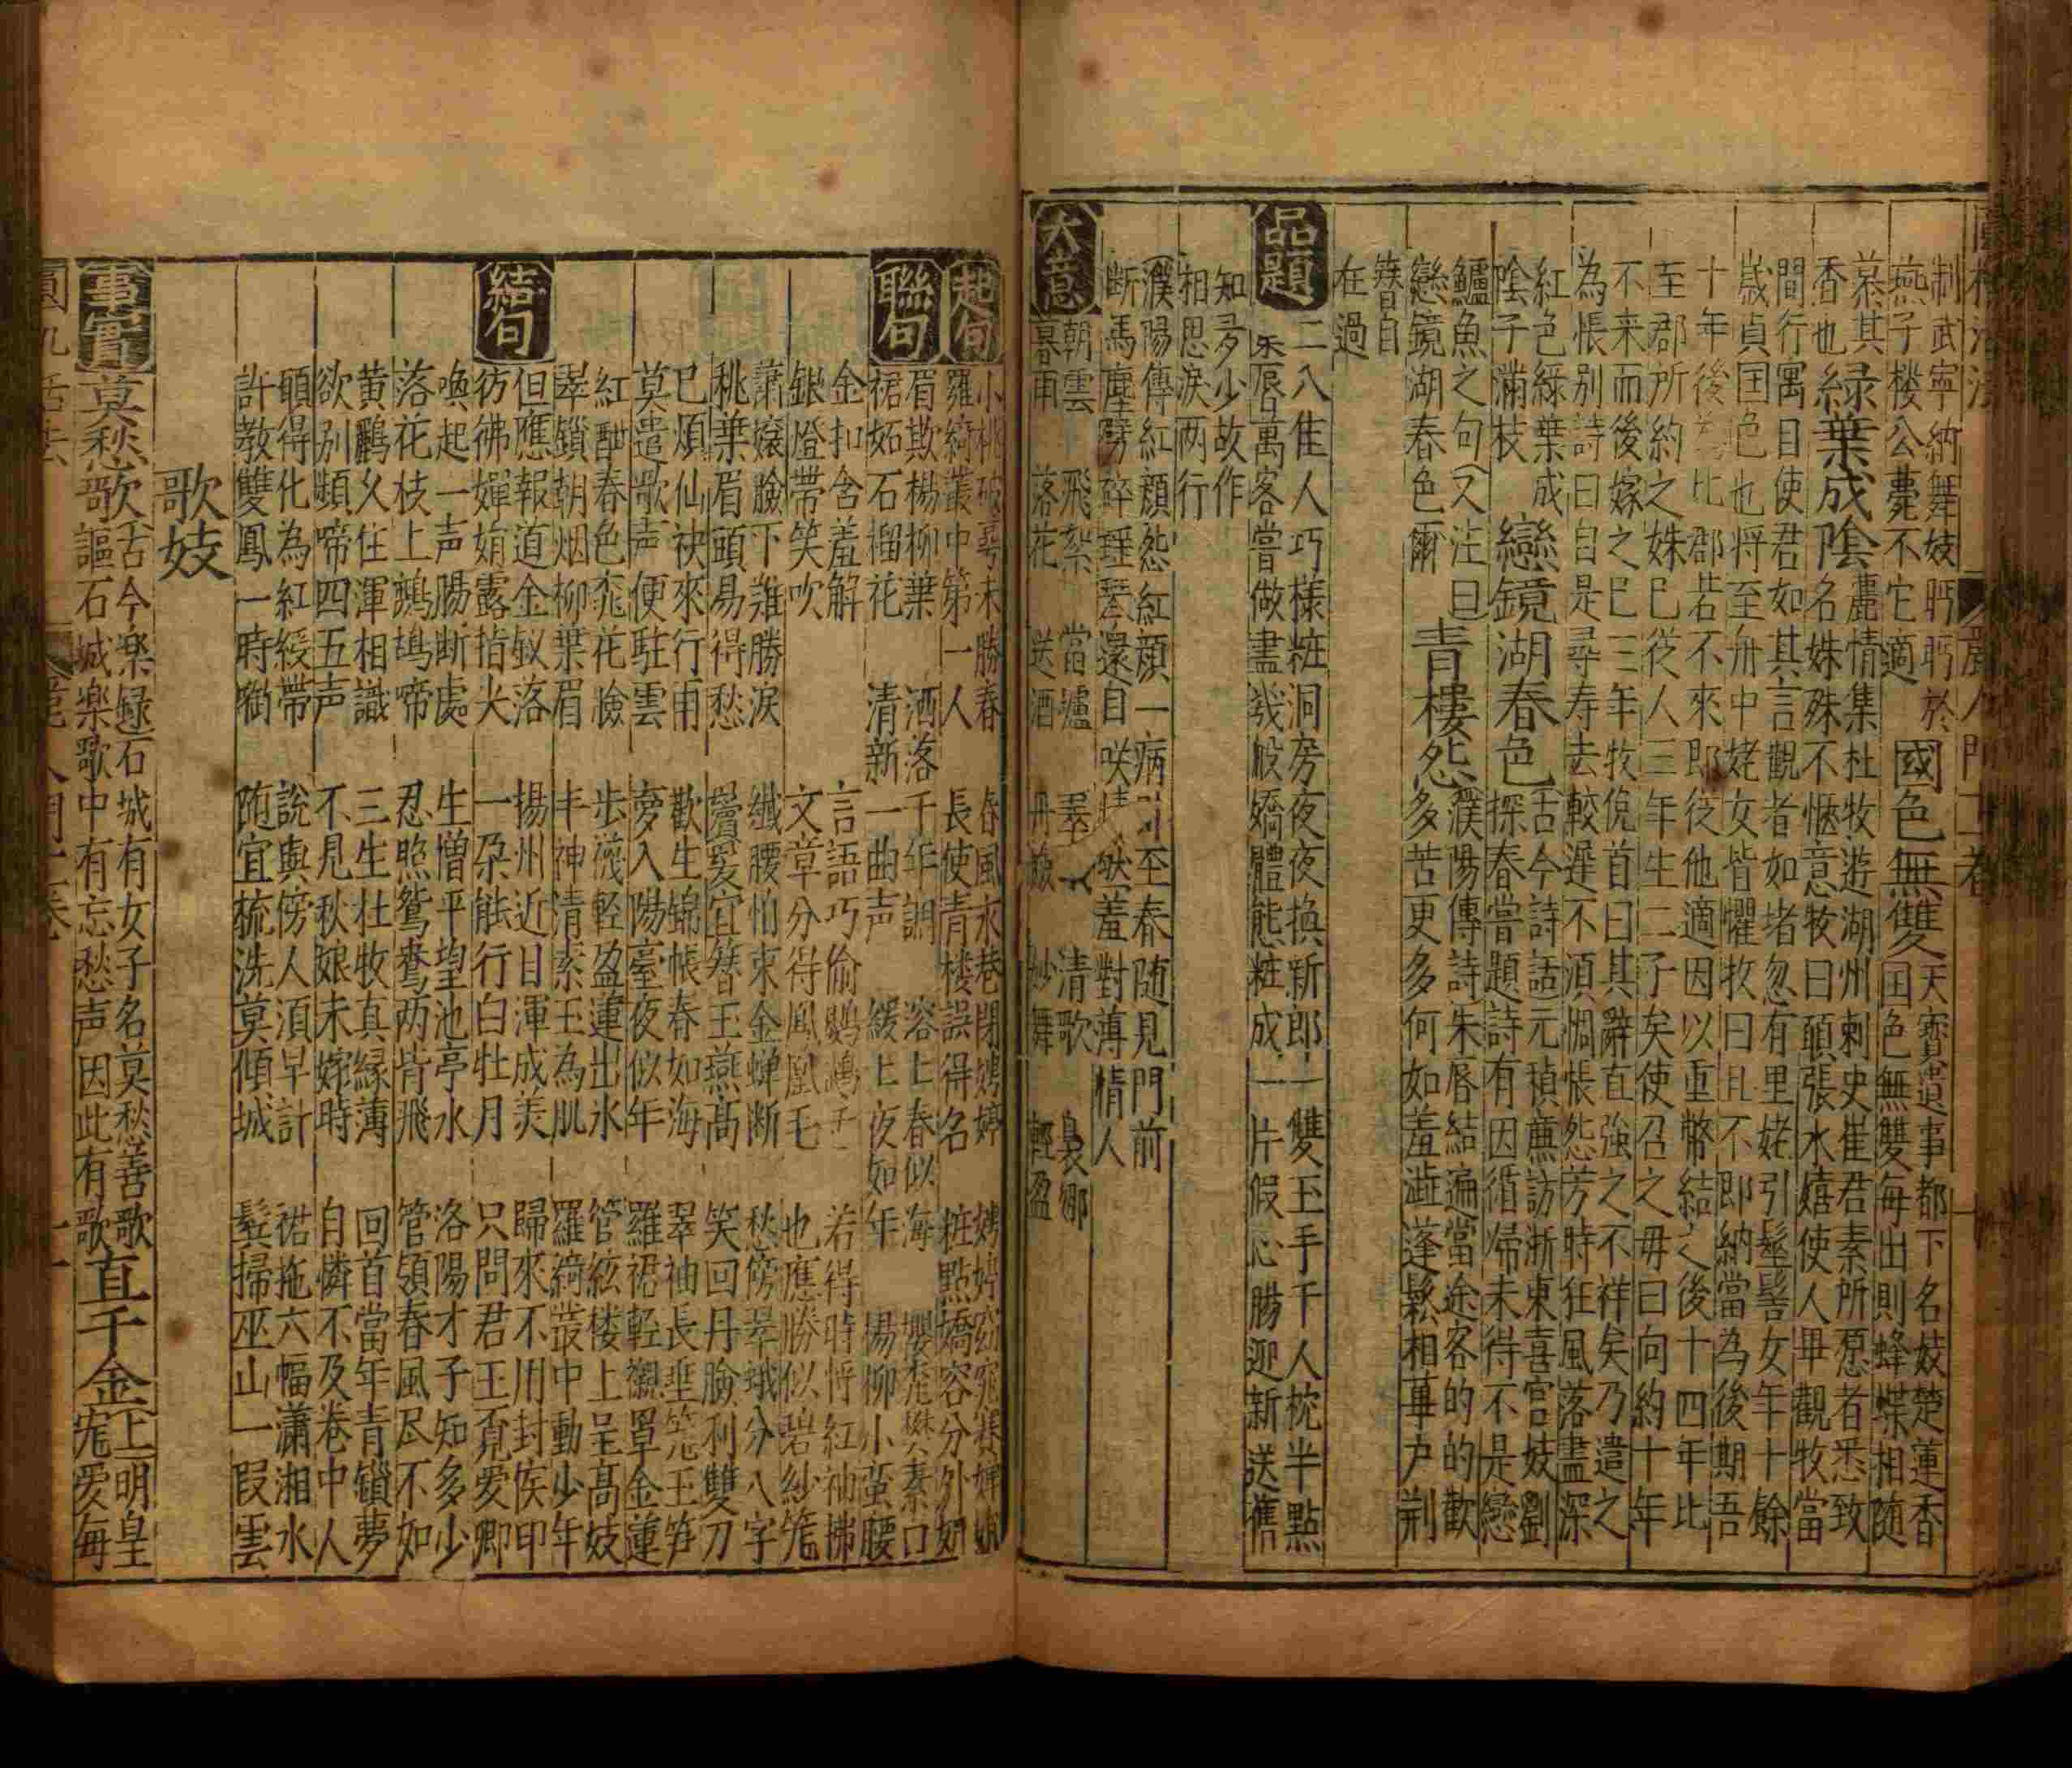 制武寧納舞妓盻盻於
燕子楼公薨不它適
國色無雙
天寶遺事都下名妓楚蓮香
国色無雙每出則蜂蝶相随
慕其
香也
綠葉成陰
麗情集杜牧遊湖州刺史崔君素所厚者悉致
名姝殊不愜意牧曰願張水嬉使人畢觀牧當
間行寓目使君如其言觀者如堵忽有里姥引髽髻女年十餘
歲貞国色也将至舟中姥女皆懼牧曰且不即納當為後期吾
十年後 比郡若不來即從他適因以重幣結之後十四年比
至郡所約之姝已從人三年生二子矣使召之母曰向約十年
不来而後嫁之已三年牧俛首曰其辭直強之不祥矣乃遣之
為悵别詩曰自是尋春去較遲不須惆悵怨芳時狂風落盡深
紅色綠葉成
陰子滿枝
戀鏡湖春色
古今詩話元稹廉訪浙東喜官妓劉
採春嘗題詩有因循歸未得不是戀
鱸魚之句又注曰
戀鏡湖春色爾
青樓怨
濮陽傳詩朱唇結遍當途客的的歡
多苦更多何如羞澁蓬鬆相事户荆
簪自
在過
品題
二八佳人巧樣粧洞房夜夜换新郎一雙玉手千人枕半點
朱唇萬客嘗做盡幾般嬌體態粧成一片假心腸迎新送舊
知多少故作
相思淚两行
濮陽傳紅顏怨紅顏一病 至春随見門前
断馬塵 還自咲 羞對薄情人
大意
朝雲 飛絮 當壚 翠 清歌 裊娜
暮雨 落花 送酒 丹臉 妙舞 輕盈
起句
小桃破萼未勝春 春風永巷閉娉婷 娉婷窈窕賽嫦娥
羅綺叢中第一人 長使青楼誤得名 粧點嬌容分外妍
聯句
眉欺楊柳葉 洒落千年調 溶上春似海 櫻桃樊素口
裙妬石榴花 清新一曲声 緩上夜如年 楊柳小蛮腰
金扣含羞解 言語巧偷鸚鵡舌 若得時将紅袖拂
銀燈帶笑吹 文章分得鳳凰毛 也應勝似碧紗籠
蕭娘臉下難勝淚 纖腰怕束金蝉断 愁傍翠蛾分八字
桃葉眉頭易得愁 鬢髮宜簪玉燕高 笑回丹臉利雙刀
已煩仙袂來行雨 歡生錦帳春如海 翠袖長垂籠玉笋
莫遣歌声便駐雲 夢入陽臺夜似年 羅裙輕襯罩金蓮
紅酣春色窕花臉 步蕩輕盈蓮出水 管絃楼上呈高妓
翠鎖朝烟柳葉眉 丰神清索玉為肌 羅綺叢中動少年
結句
但應報道金釵落 揚州近日渾成羙 歸來不用封侯印
彷彿嬋娟露指尖 一朶能行白牡月 只問君王覓愛卿
喚起一声腸断處 生憎平望池亭水 洛陽才子知多少
落花枝上鷓鴣啼 忍照鴛鴦两背飛 管領春風尽不如
黄鸝久住渾相識 三生杜牧真緣薄 回首當年青鎖夢
欲别頻啼四五声 不見秋娘未嫁時 自憐不及巻中人
願得化為紅綬帶 說與傍人須早計 裙拖六幅瀟湘水
許教雙鳳一時啣 随宜梳洗莫傾城 鬓掃巫山一叚雲
歌妓
事實
莫愁歌
古今樂録石城有女子名莫愁善歌
謳石城樂歌中有忘愁声因此有歌
直千金
上明皇
寵爱每